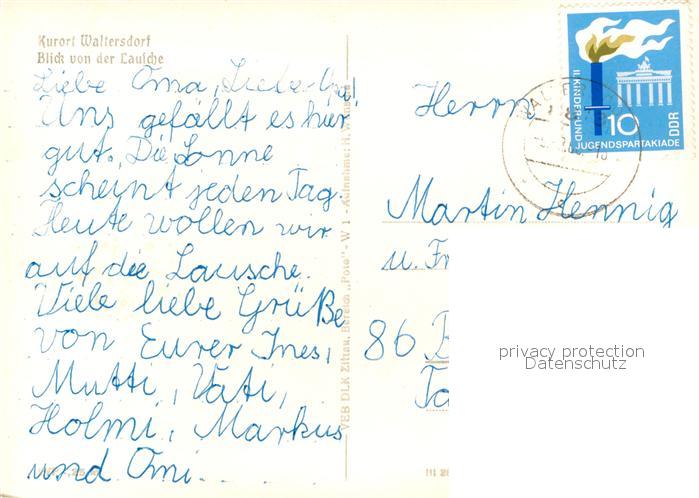 Kurort Waltersdorf
Blick von der Lausche
Liebe Oma, Liebe Uroi!
Uns gefällt es hier
gut. Die Sonne
scheint jeden Tag.
Heute wollen wir
auf die Lausche.
Viele liebe Grüße
von Eurer Ines,
Mutti, Vati,
Holmi, Markus
und Omi...
VEB DLK Zittau, Bereich „Pote“ - W 1 - Aufnahme:
II. KINDER-UND
JUGENDSPARTAKIADE
10
DDR
Herrn
Martin Hennig
u. Fr
86 B
Ta
privacy protection
Datenschutz